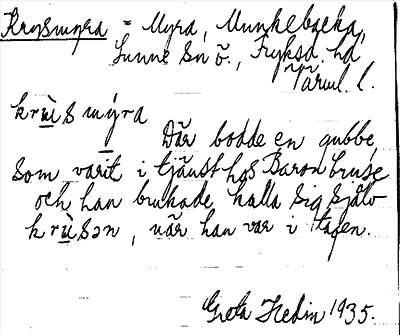 Krysmyra = Myra, Munkebacka,
Sunne Sn ö., Fryksd. hd
Värml. l.
krùs mýra
Där bodde en gubbe,
som varit i tjänst hos Baron Cruse
och han brukade kalla sig själv
krùsən, när han var i tagen.
Greta Hedin 1935.